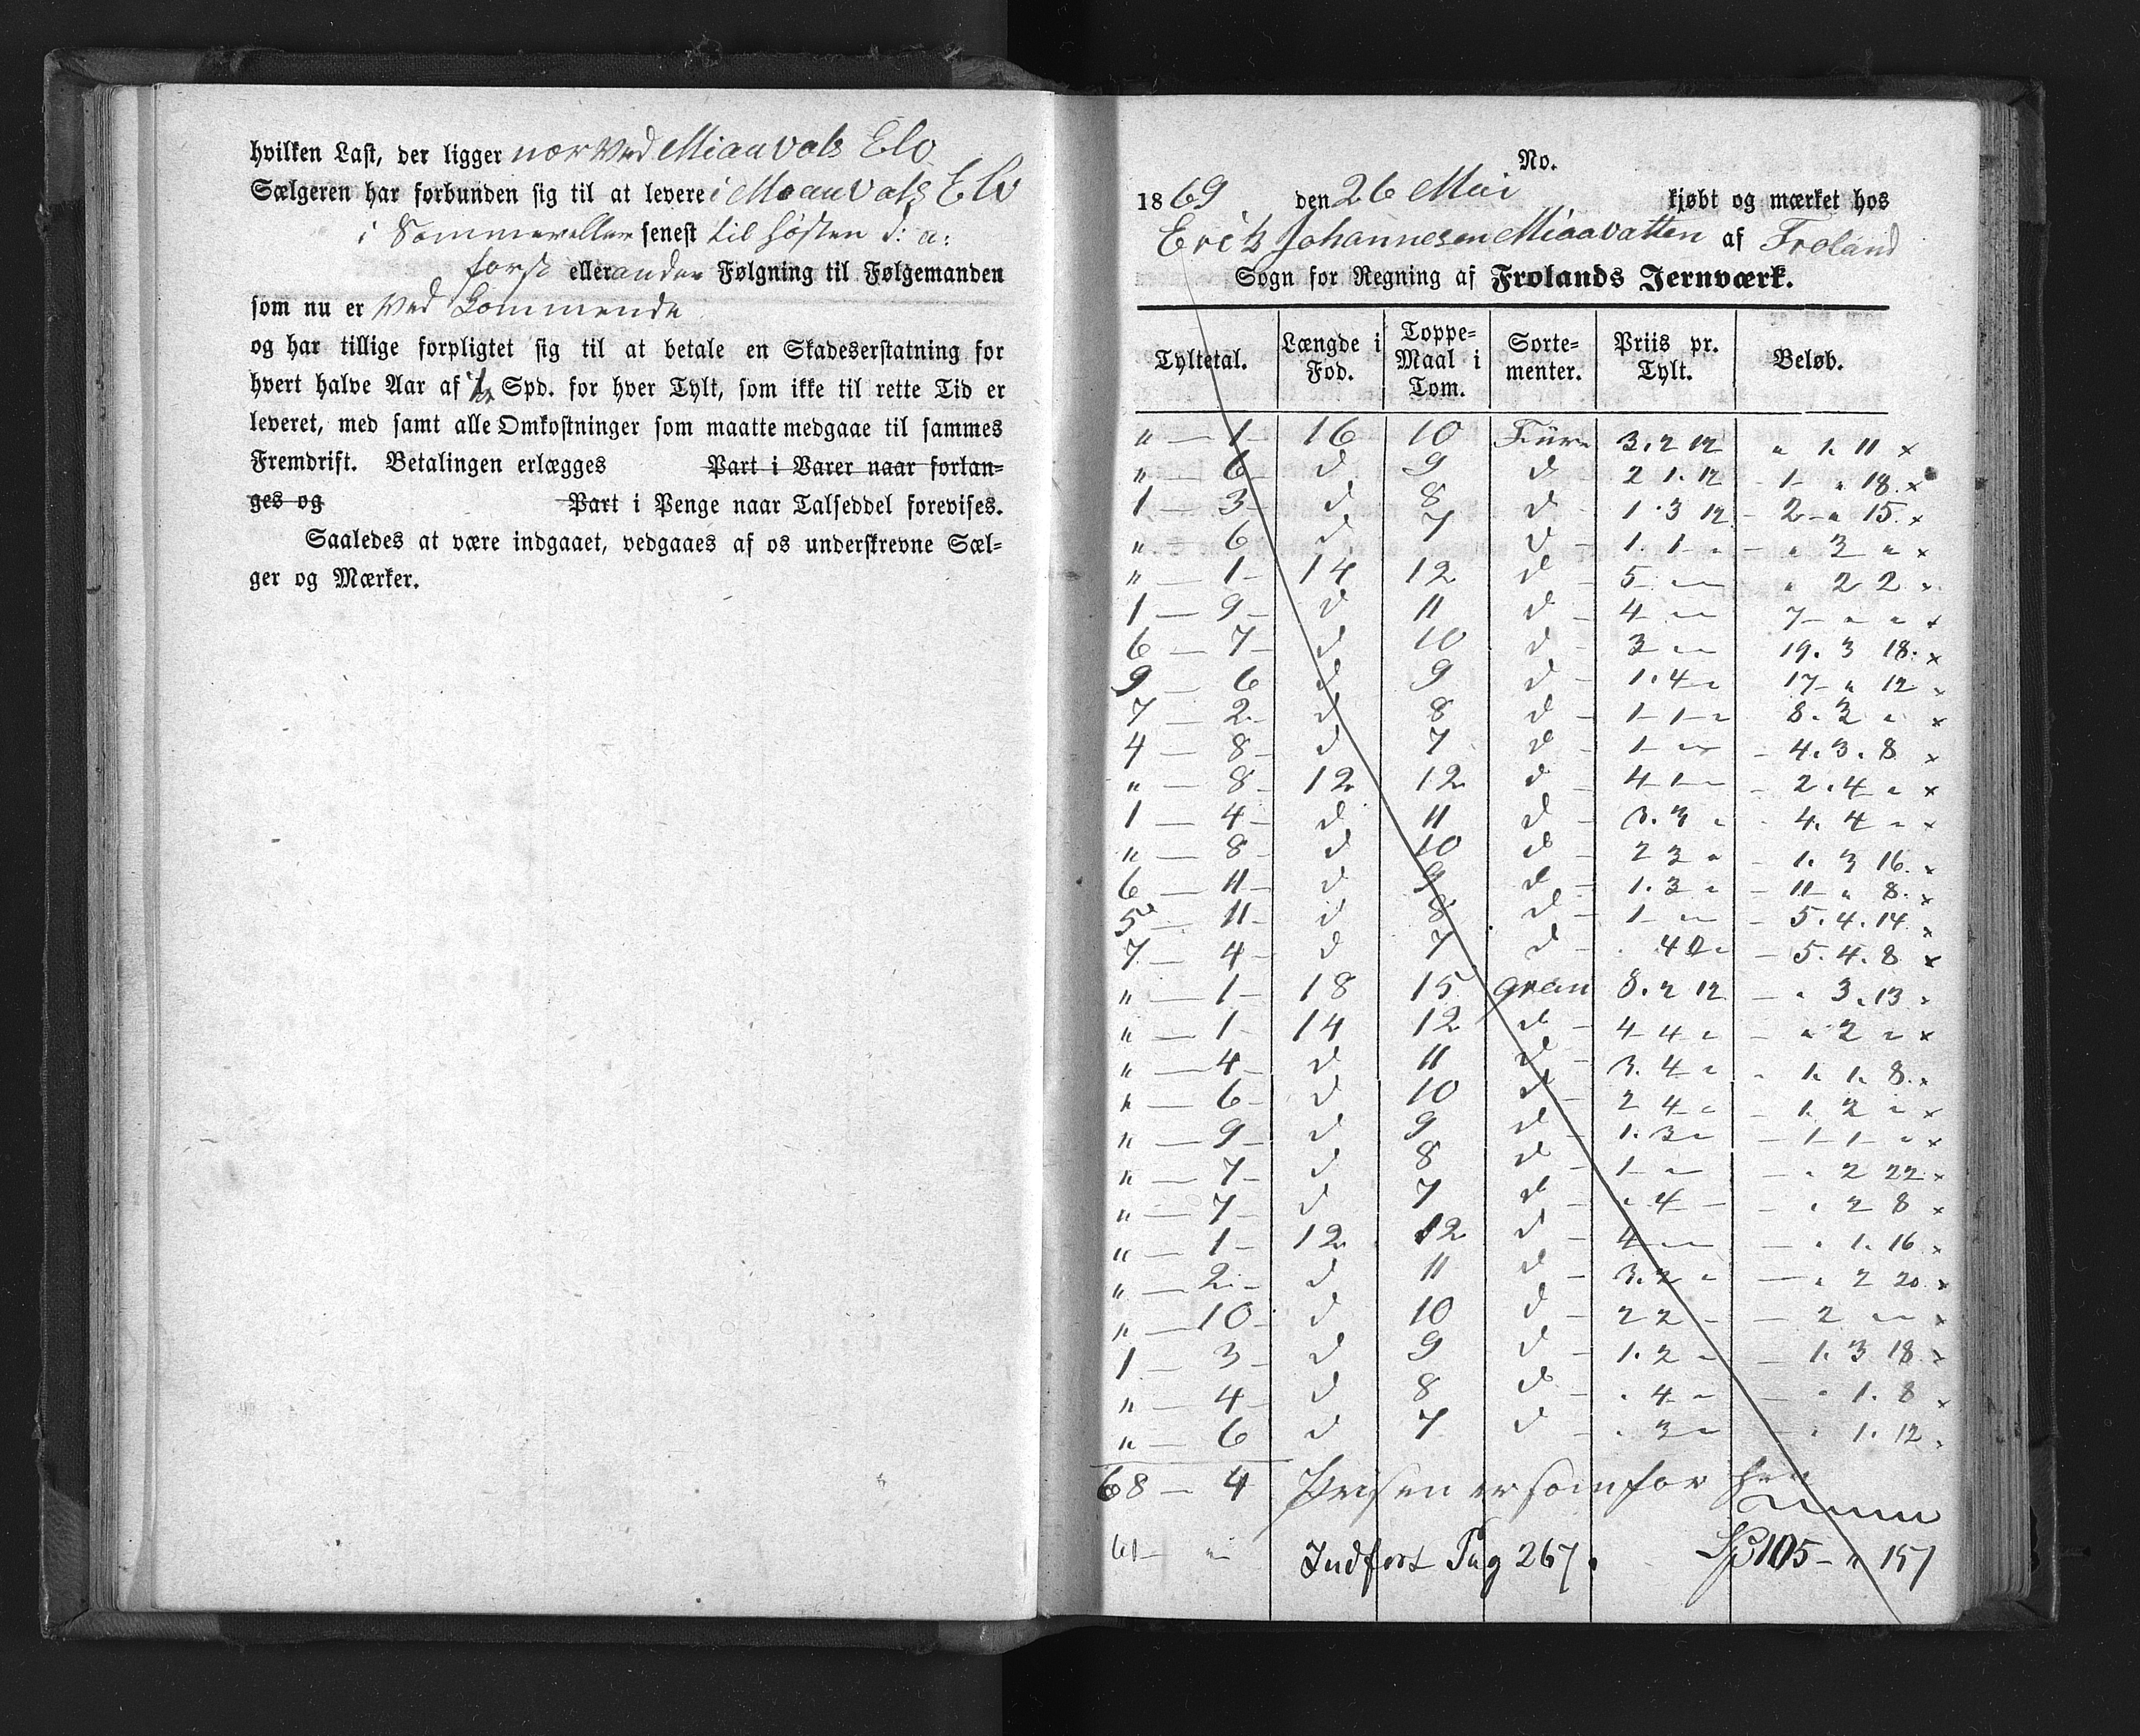 hvilken Last, der ligger nær ved Miauvats Elv
Sælgeren har forbunden sig til at levere i Moauvats Elv
i Sommer eller senest til høsten d: a:
først eller anden Følgning til Følgemanden
som nu er ved kommende
og har tillige forpligtet sig til at betale en Skadeserstatning for
hvert halve Aar af ½ Spd. for hver Tylt, som ikke til rette Tid er
leveret, med samt alle Omkostninger som maatte medgaae til sammes
Fremdrift. Betalingen erlægges Part i Varer naar forlan-
ges og Part i Penge naar Talseddel forevises.
Saaledes at være indgaaet, vedgaaes af os underskrevne Sæl-
ger og Mærker.
No.
1869 den 26 Mai kjøbt og mærket hos
Erik Johannesen Miaavatten af Froland
Sogn for Regning af Frolands Jernværk.
Tyltetal. Længde i Fod. Toppe-Maal i Tom. Sorte-menter. Priis pr. Tylt. Beløb.
" — 1 16 10 Furu 3. 2 12 " 1. 11 x
" — 6 d 9 d 2 1. 12 1 - " 18. x
1 — 3 d 8 d 1. 3 12 2 - " 15. x
" — 6 d 7 d 1. 1 - " " 3 " x
" — 1 14 12 d 5 - " " 2 2 x
1 — 9 d 11 d 4 - " 7 - " " x
6 — 7 d 10 d 3 - " 19. 3 18. x
9 — 6 d 9 d 1. 4 " 17 - " 12 x
7 — 2 d 8 d 1 - 1 - " 8. 3 " x
4 — 8 d 7 d 1 - " 4. 3. 8 x
" — 8 12 12 d 4 1 - 2. 4 " x
1 — 4 d 11 d 3. 3 " 4. 4 " x
" — 8 d 10 d 2 3 " 1. 3 16. x
6 — 11 d 9 d 1. 3 " 11 - " 8. x
5 — 11 d 8 d 1 - " 5. 4. 14 x
7 — 4 d 7 d . 4 " 5. 4. 8 x
" — 1 18 15 gran 8. 2 12 " 3. 13 x
" — 1 14 12 d 4 4 " " 2 " x
" — 4 d 11 d 3. 4 " 1. 1. 8. x
" — 6 d 10 d 2 4 " 1. 2 " x
" — 9 d 9 d 1. 3 " 1 - 1 - " x
" — 7 d 8 d 1 - " " 2 22 x
" — 7 d 7 d " 4 - " 2 8 x
" — 1 12 12 d 4 - " " 1. 16 x
" — 2 d 11 d 3. 2 " " 2 20 x
" — 10 d 10 d 2 2 - 2 " " x
1 — 3 d 9 d 1. 2 " 1. 3 18 x
" — 4 d 8 d . 4 " " 1. 8 x
" — 6 d 7 d . 3 " " 1. 12 x
68 — 4 Prisen er som for
61 — " Indført Pag 267. Sp 105 - " 157